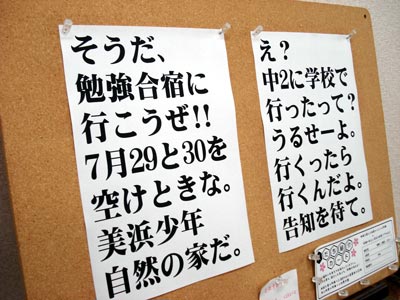 そうだ、
勉強合宿に
行こうぜ!!
7月29と30を
空けときな。
美浜少年
自然の家だ。
え?
中2に学校で
行ったって?
うるせーよ。
行くったら
行くんだよ。
告知を待て。